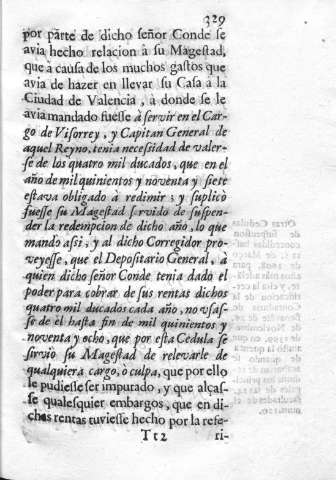 329
por parte de dicho señor Conde se
avia hecho relacion à su Magestad,
que à causa de los muchos gastos que
avia de hazer en llevar su Casa à la
Ciudad de Valencia, à donde se le
avia mandado fuesse à servir en el Car-
go de Visorrey, y Capitan General de
aquel Reyno, tenia necessidad de valer-
se de los quatro mil ducados, que en el
año de mil quinientos y noventa y siete
estava obligado à redimir; y suplicò
fuesse su Magestad servido de suspen-
der la redempcion de dicho año, lo que
mandò assi, y al dicho Corregidor pro-
veyesse, que el Depositario General, à
quien dicho señor Conde tenia dado el
poder para cobrar de sus rentas dichos
quatro mil ducados cada año, no usas-
se de èl hasta fin de mil quinientos y
noventa y ocho, que por esta Cedula se
sirviò su Magestad de relevarle de
qualquiera cargo, ò culpa, que por ello
le pudiesse ser imputado, y que alças-
se qualesquier embargos, que en di-
chas rentas tuviesse hecho por la refe-
Tt2 ri-